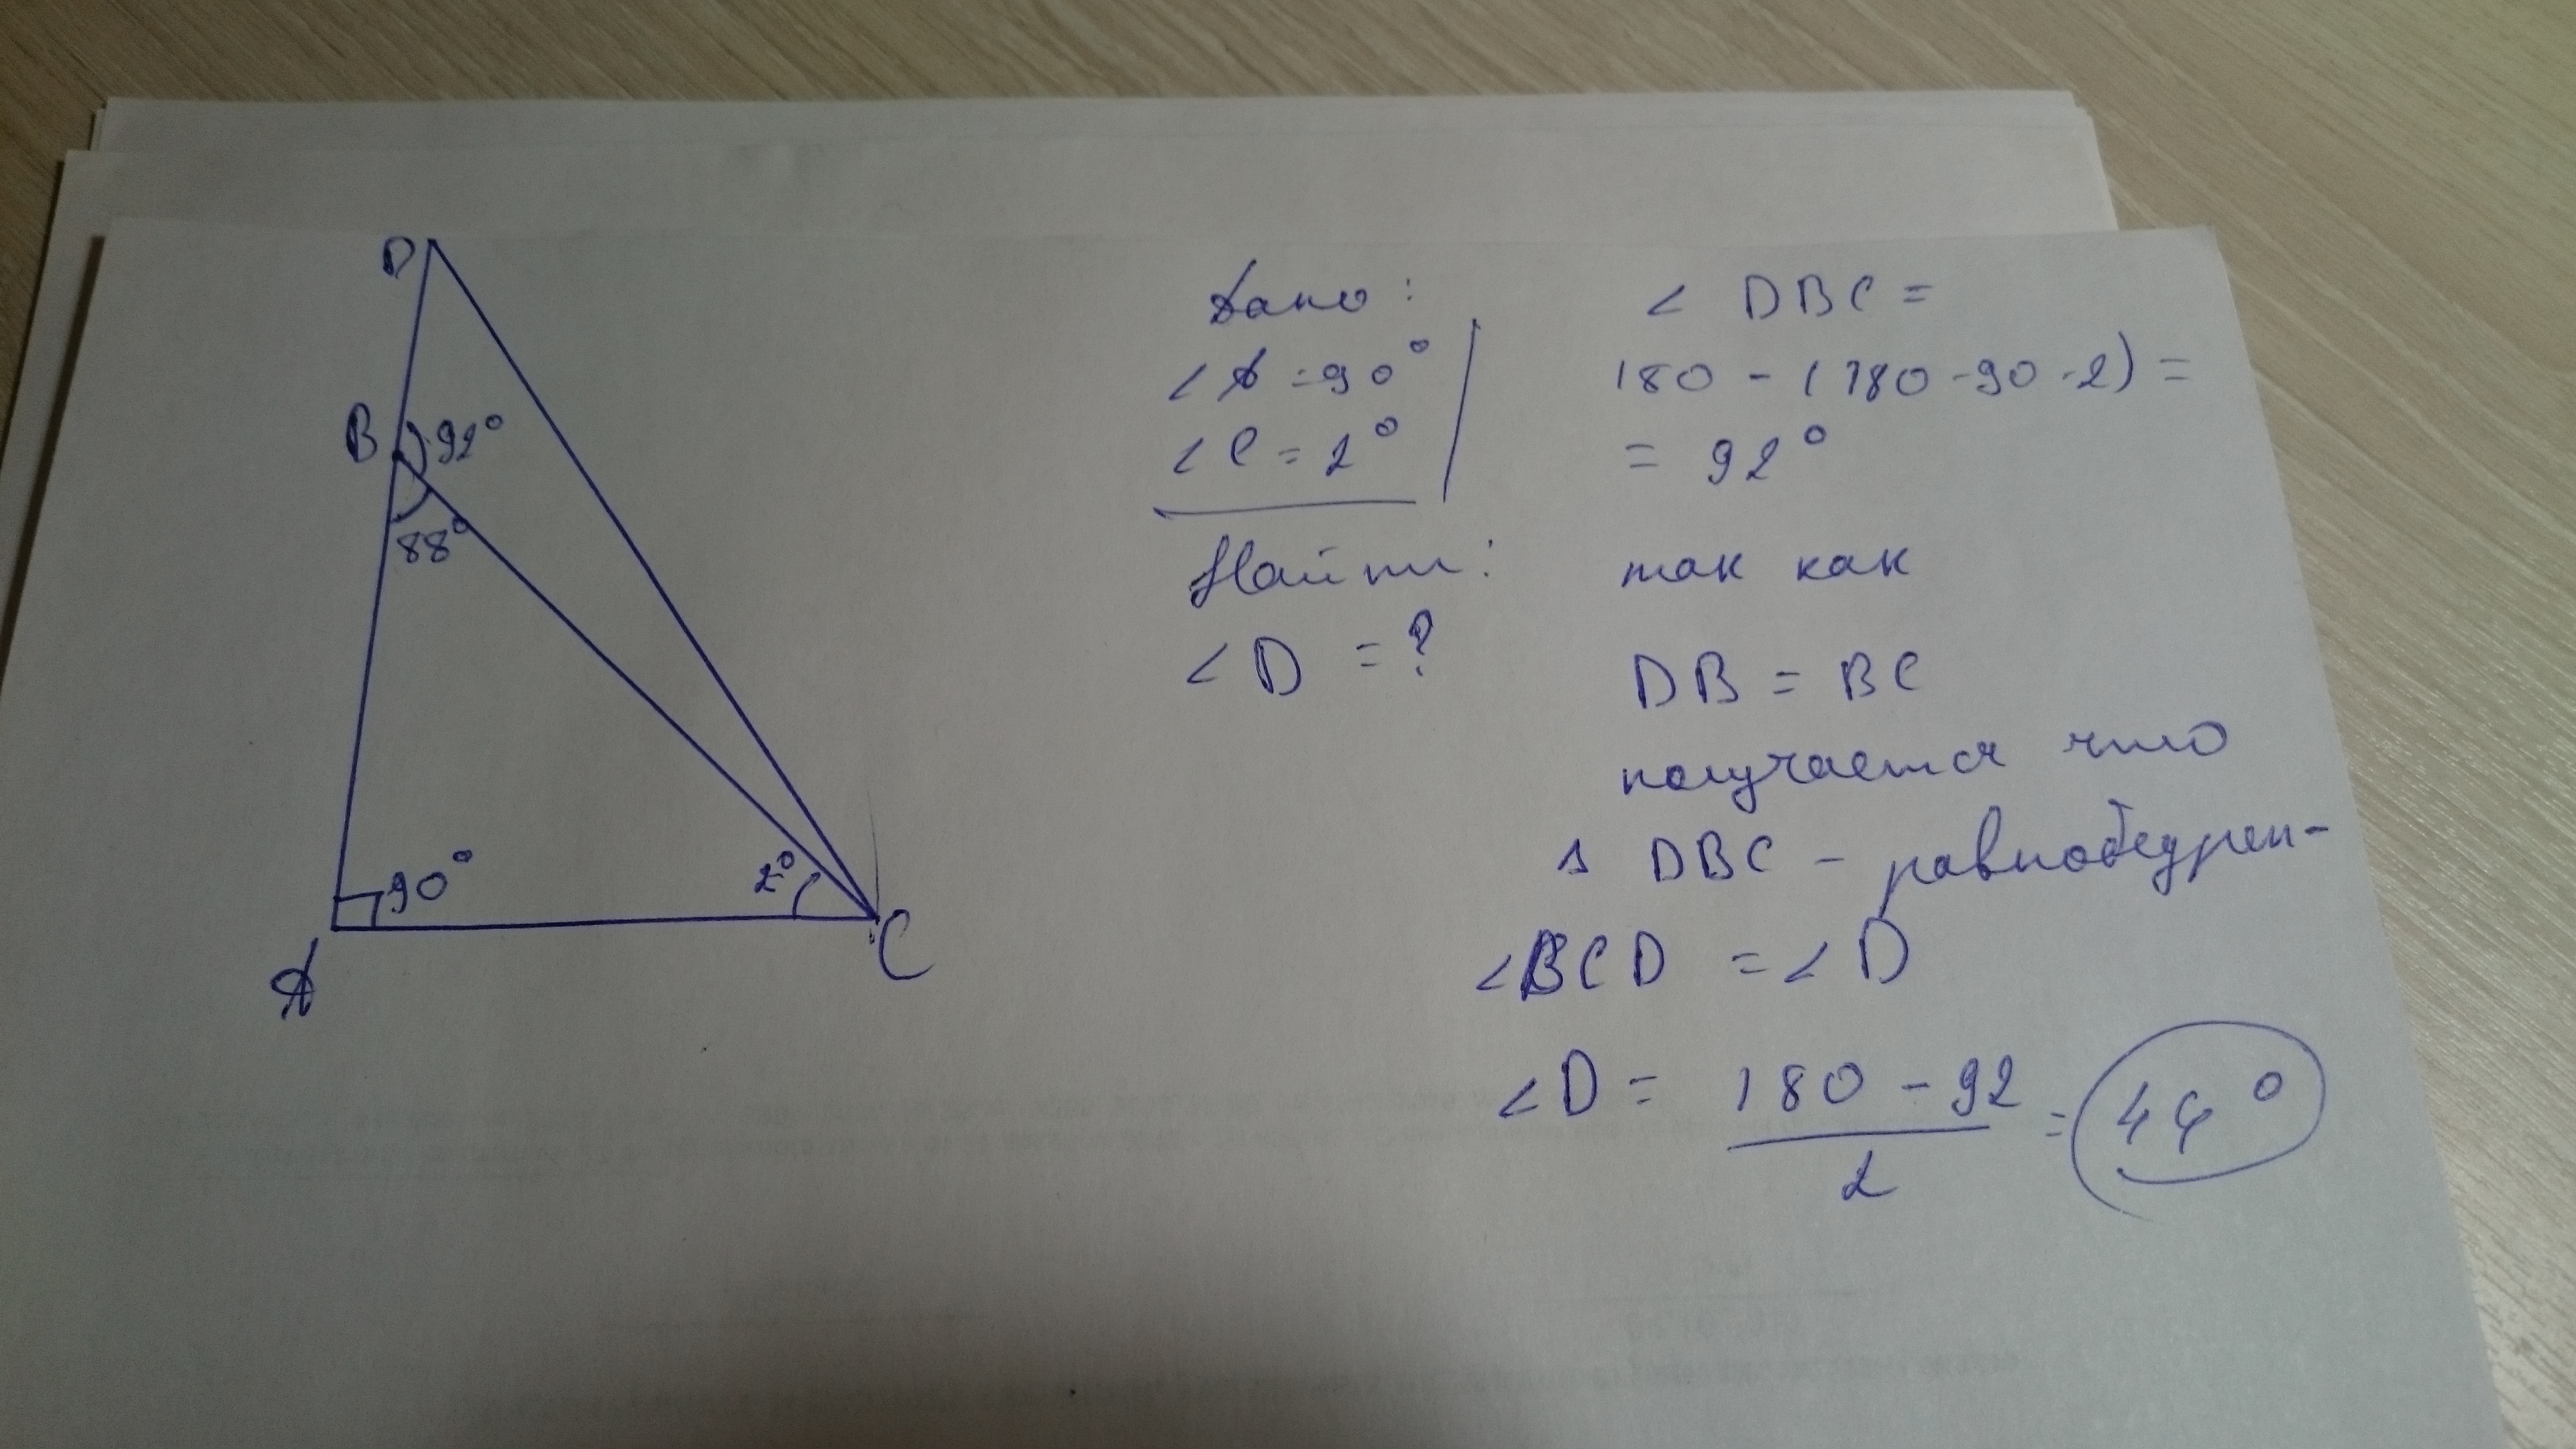 D
B 92°
88°
90° 2°
A C
Дано:
∠A = 90°
∠C = 2°
Найти:
∠D = ?
∠ DBC =
180 - (180 - 90 - 2) =
= 92°
так как
DB = BC
получается что
Δ DBC - равнобедрен-
∠BCD = ∠D
∠D = 180 - 92 = 44°
2